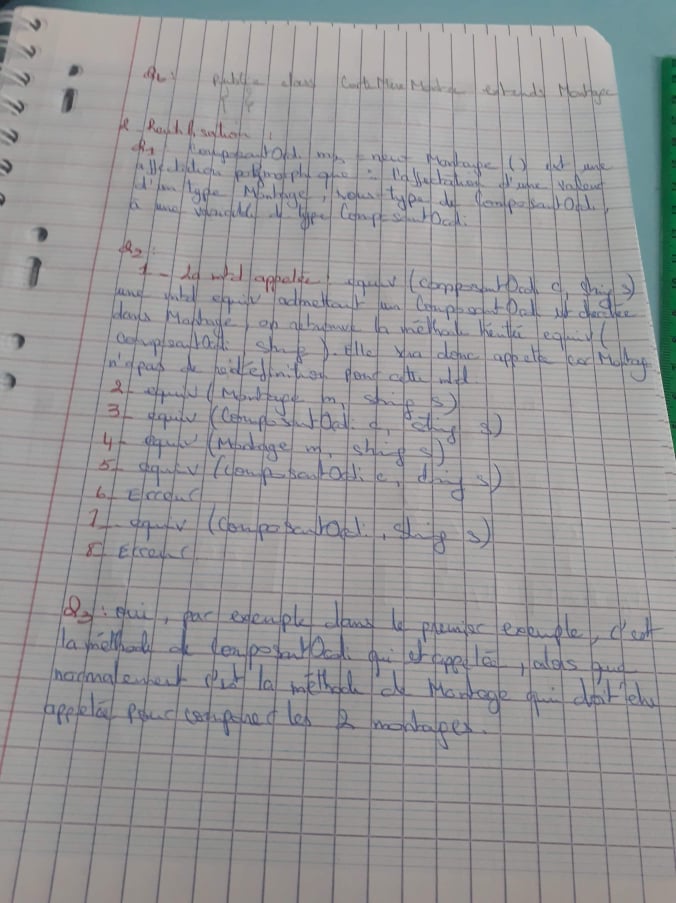 public class extends Montage
2 Redéfinition :
Q1 ComposantOrdi = new Montage () est une
affectation polymorphique : l'affectation d'une valeur
d'un type Montage, sous type de ComposantOrdi,
à une variable de type ComposantOrdi.
Q2 :
1 - La mtd appelée equiv (ComposantOrdi c, string s)
une mtd equiv admettant un ComposantOrdi est
dans Montage, on la méthode héritée equiv(
ComposantOrdi string). Elle va donc car Montage
n'a pas de pour cette mtd.
2 - equiv (Montage m, string s)
3 - equiv (ComposantOrdi c, string s)
4 - equiv (Montage m, string s)
5 - equiv (ComposantOrdi c, string s)
6 - Erreur
7 - equiv (ComposantOrdi , string s)
8 - Erreur
Q3 : oui, par exemple dans le premier exemple, c'est
la méthode de ComposantOrdi qui est appelée, alors que
normalement c'est la méthode de Montage qui doit être
appelée pour comparer les 2 montages.